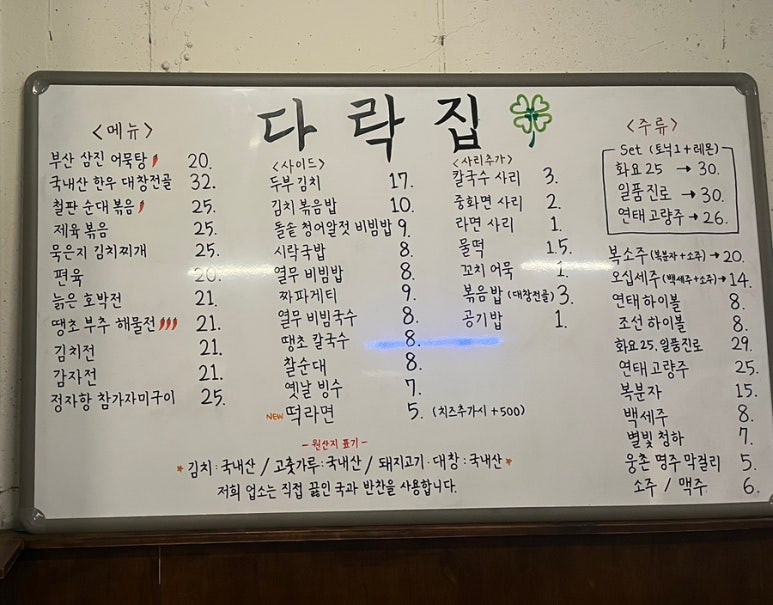 다락집
<메뉴>
부산 삼진 어묵탕 20.
국내산 한우 대창전골 32.
철판 순대 볶음 25.
제육 볶음 25.
묵은지 김치찌개 25.
편육 20.
늙은 호박전 21.
땡초 부추 해물전 21.
김치전 21.
감자전 21.
정자항 참가자미구이 25.
<사이드>
두부 김치 17.
김치 볶음밥 10.
돌솥 청어알젓 비빔밥 9.
시락국밥 8.
열무 비빔밥 8.
짜파게티 9.
열무 비빔국수 8.
땡초 칼국수 8.
찰순대 8.
옛날 빙수 7.
NEW 떡라면 5. (치즈추가시 +500)
<사리추가>
칼국수 사리 3.
중화면 사리 2.
라면 사리 1.
물떡 1.5.
꼬치 어묵 1.
볶음밥 (대창전골) 3.
공기밥 1.
<주류>
Set (토닉1+레몬)
화요 25 → 30.
일품진로 → 30.
연태 고량주 → 26.
복소주 (복분자+소주) → 20.
오십세주 (백세주+소주) → 14.
연태 하이볼 8.
조선 하이볼 8.
화요 25, 일품진로 29.
연태 고량주 25.
복분자 15.
백세주 8.
별빛 청하 7.
웅촌 명주 막걸리 5.
소주 / 맥주 6.
- 원산지 표기 -
*김치 : 국내산 / 고춧가루 : 국내산 / 돼지고기 · 대창 : 국내산*
저희 업소는 직접 끓인 국과 반찬을 사용합니다.